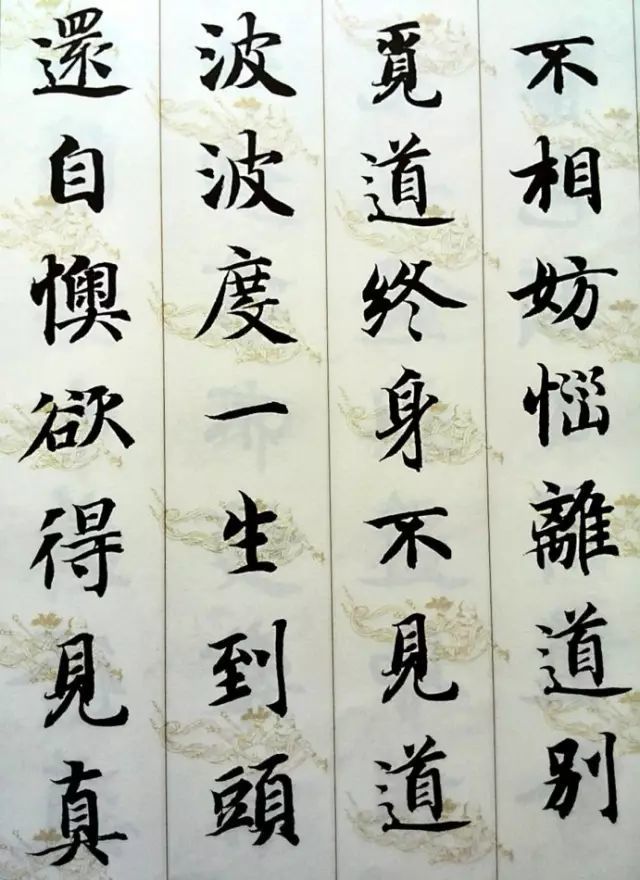 不相妨惱離道别
覓道終身不見道
波波度一生到頭
還自懊欲得見真